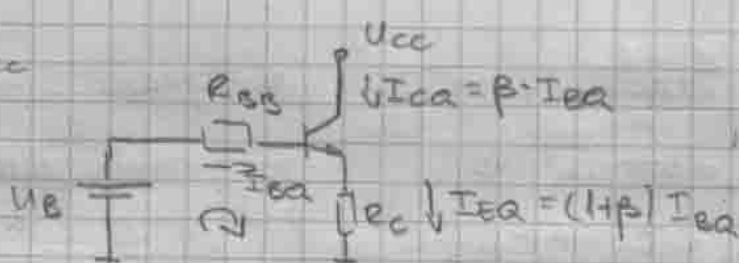 UCC
c
RBB
↓ICQ = β·IBQ
IBQ
UB
RC
↓ IEQ = (1+β) IBQ